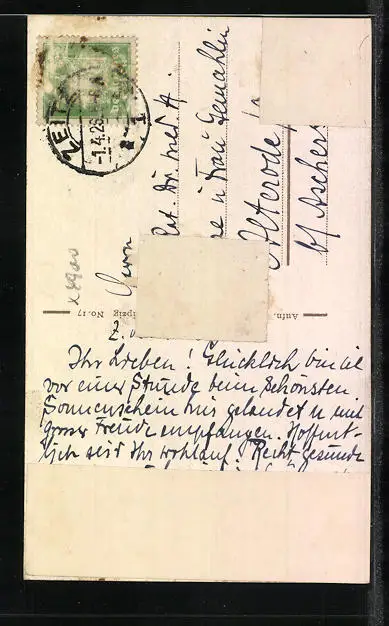 ZEITZ
-1.4.26
1
Herrn
Rat. Dr. med. A.
u Frau Gemahlin
Alterode
b/ Aschers
x8900
Aufn.
Leipzig No. 17
Ihr Lieben! Glücklich bin ich
vor einer Stunde beim schönsten
Sonnenschein hier gelandet u mit
grosser Freude empfangen. Hoffent-
lich seid Ihr wohlauf. Recht gesunde